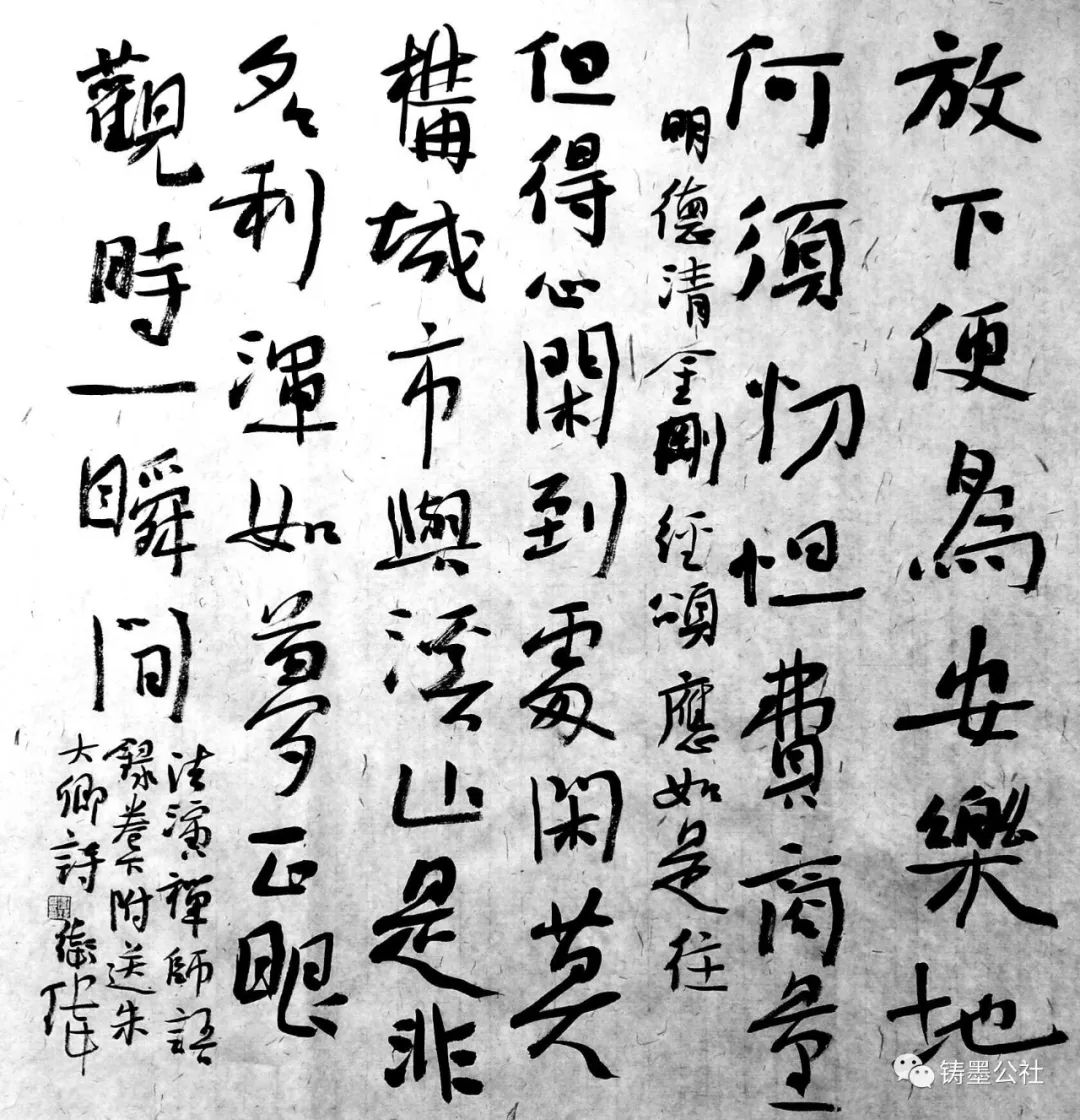 放下便為安樂地
何須忉怛費商量
明德清金剛經頌應如是住
但得心閑到處閑莫
構城市與溪山是非
名利渾如夢正眼
觀時一瞬間
法演禪師語
錄卷下附送朱
大卿詩
铸墨公社